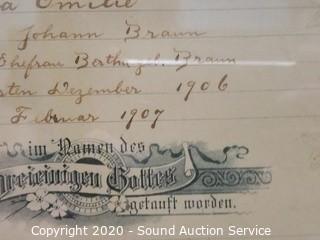 a Emilie
Johann Braun
Ehefrau Bertha geb. Braun
sten Dezember 1906
Februar 1907
im Namen des
Dreieinigen Gottes
getauft worden.
Copyright 2020 - Sound Auction Service